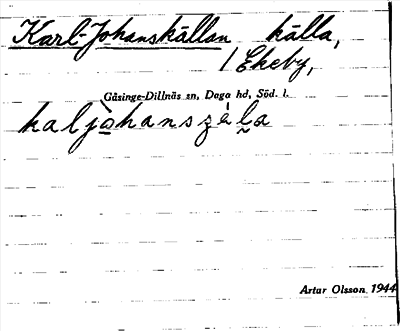 Karl-Johanskällan källa,
/ Ekeby,
Gåsinge-Dillnäs sn, Daga hd, Söd. l.
kaljòhanszéla
Artar Olsson 1944